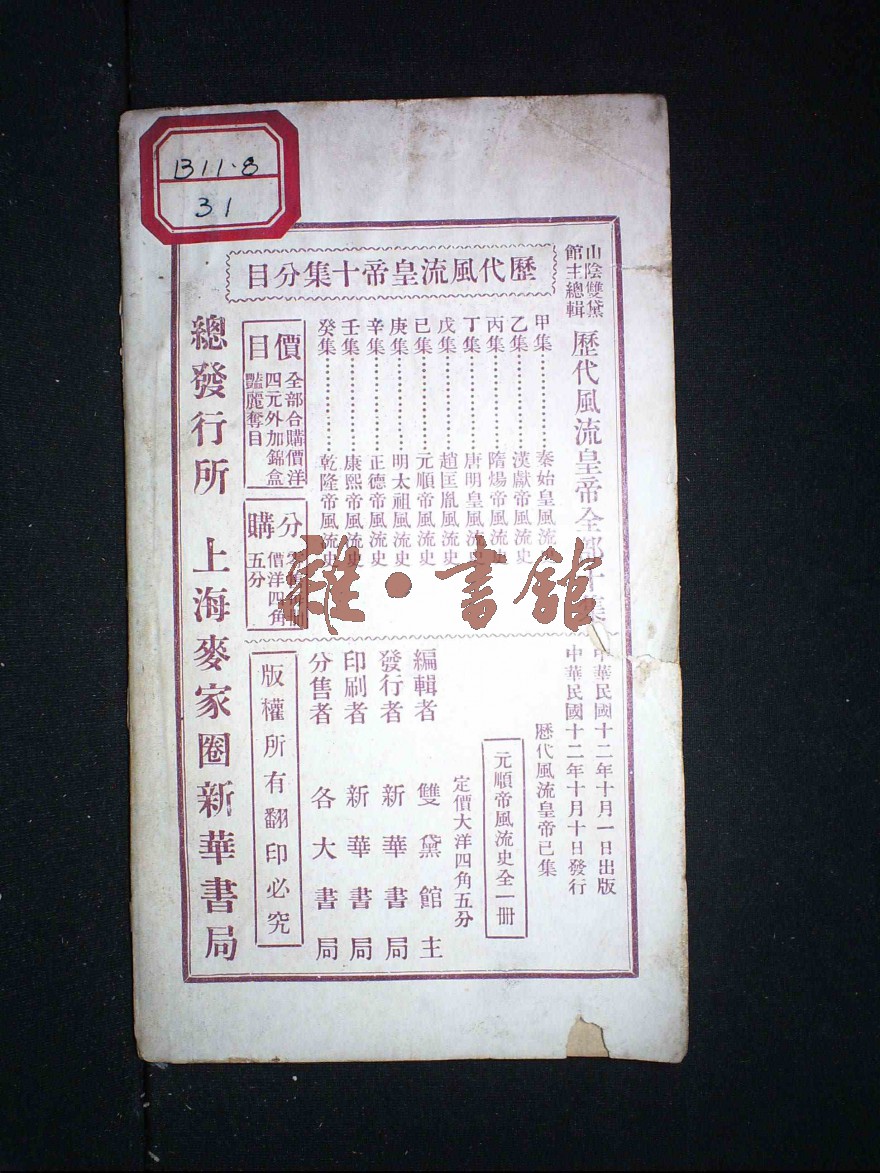 B11·8
31
山陰雙黛
館主總輯
歷代風流皇帝全部十集
歷代風流皇帝十集分目
甲集……………秦始皇風流史
乙集……………漢獻帝風流史
丙集……………隋煬帝風流史
丁集……………唐明皇風流史
戊集……………趙匡胤風流史
已集……………元順帝風流史
庚集……………明太祖風流史
辛集……………正德帝風流史
壬集……………康熙帝風流史
癸集……………乾隆帝風流史
價目
全部合購價洋
四元外加錦盒
豔麗奪目
分購
價洋四角
五分
中華民國十二年十月一日出版
中華民國十二年十月十日發行
歷代風流皇帝已集
元順帝風流史全一冊
定價大洋四角五分
編輯者 雙黛館主
發行者 新華書局
印刷者 新華書局
分售者 各大書局
版權所有翻印必究
總發行所 上海麥家圈新華書局
雜·書館